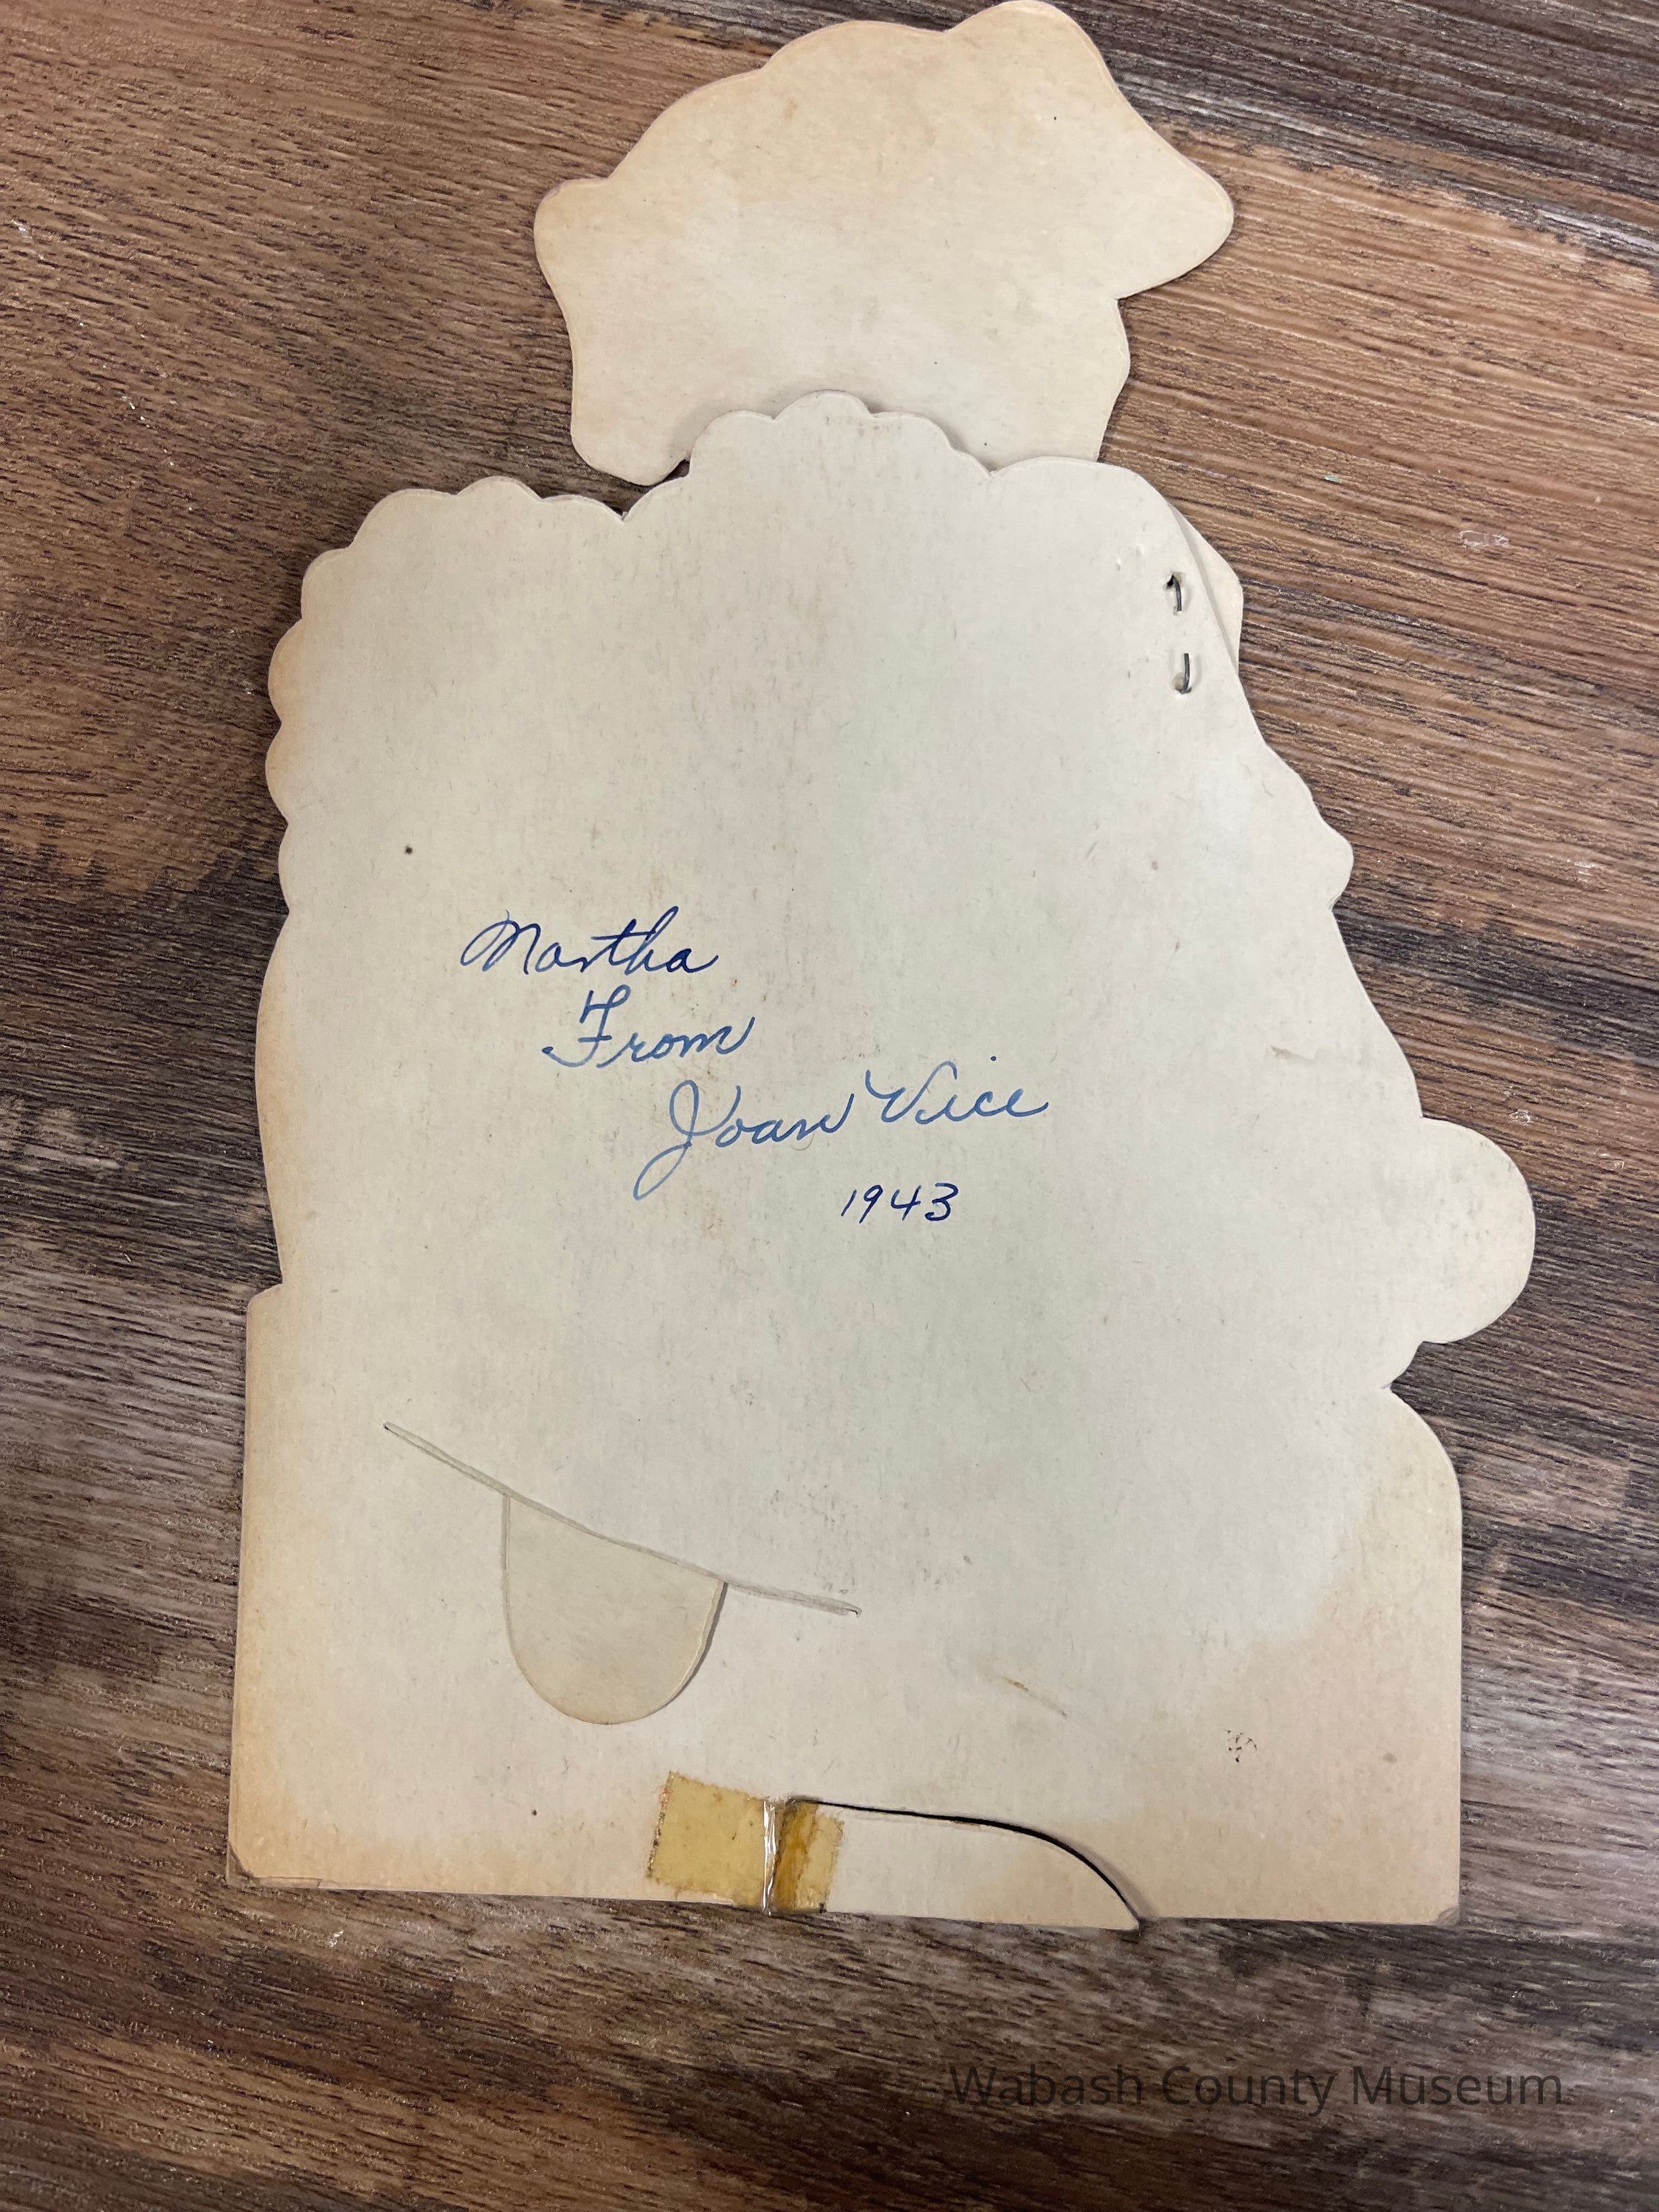 Martha
From
Joan Vice
1943
Wabash County Museum